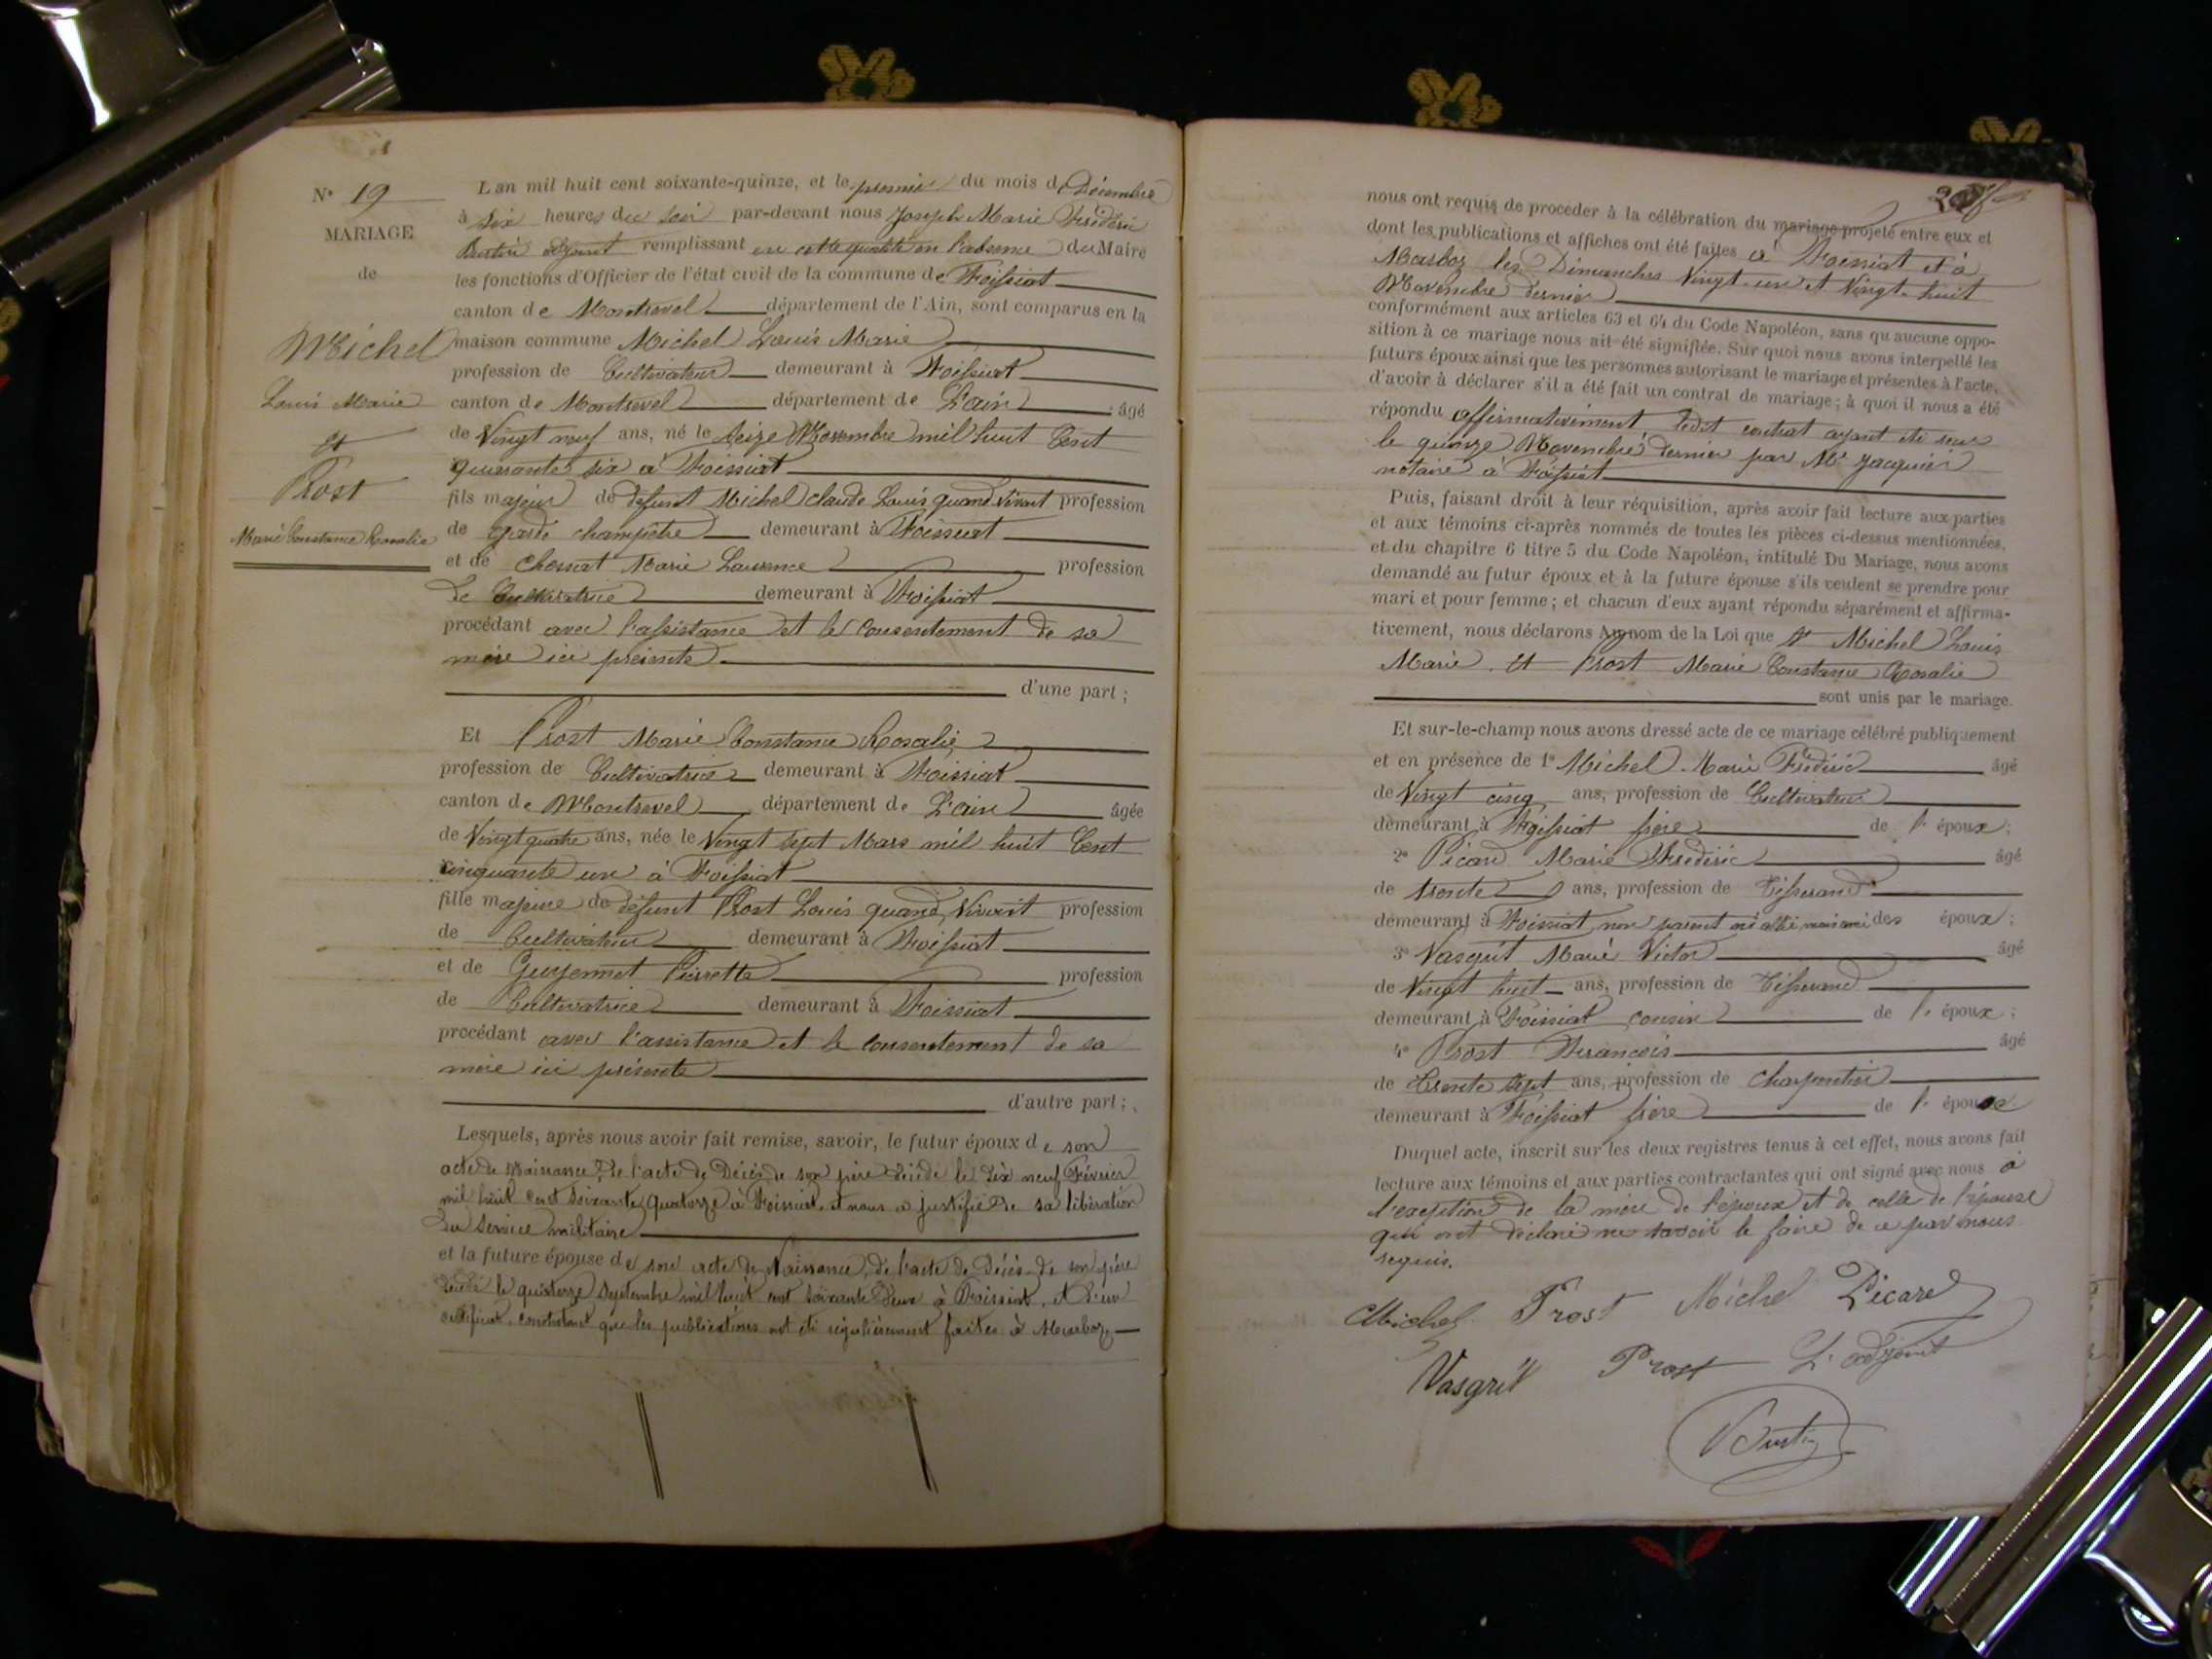 N° 19
MARIAGE
de
Michel
Louis Marie
et
Prost
Marie Constance Rosalie
L'an mil huit cent soixante-quinze, et le premier du mois de Décembre
à six heures du soir par-devant nous Joseph Marie Frédéric
Burtin adjoint remplissant en cette qualité en l'absence du Maire
les fonctions d'Officier de l'état civil de la commune de Foissiat
canton de Montrevel département de l'Ain, sont comparus en la
maison commune Michel Louis Marie
profession de Cultivateur demeurant à Foissiat
canton de Montrevel département de L'ain âgé
de Vingt neuf ans, né le seize Novembre mil huit Cent
quarante six à Foissiat
fils majeur de défunt Michel Claude Louis quand vivait profession
de garde champêtre demeurant à Foissiat
et de Chossat Marie Laurence profession
de Cultivatrice demeurant à Foissiat
procédant avec l'assistance et le consentement de sa
mère ici présente
d'une part ;
Et Prost Marie Constance Rosalie
profession de Cultivatrice demeurant à Foissiat
canton de Montrevel département de L'ain âgée
de Vingt quatre ans, née le Vingt sept Mars mil huit Cent
cinquante un à Foissiat
fille majeure de défunt Prost Louis quand vivait profession
de Cultivateur demeurant à Foissiat
et de Guyennet Pierrette profession
de Cultivatrice demeurant à Foissiat
procédant avec l'assistance et le consentement de sa
mère ici présente
d'autre part ;
Lesquels, après nous avoir fait remise, savoir, le futur époux de son
acte de Naissance, de l'acte de Décès de son père décédé le dix neuf Février
mil huit cent soixante quatorze à Foissiat, et nous a justifié de sa libération
du service militaire
et la future épouse de son acte de Naissance, de l'acte de Décès de son père
décédé le quatorze Septembre mil huit cent soixante deux à Foissiat, et d'un
certificat constatant que les publications ont été régulièrement faites à Marboz
nous ont requis de procéder à la célébration du mariage projeté entre eux et
dont les publications et affiches ont été faites à Foissiat et à
Marboz les Dimanches Vingt-un et Vingt-huit
Novembre dernier
conformément aux articles 63 et 64 du Code Napoléon, sans qu'aucune oppo-
sition à ce mariage nous ait été signifiée. Sur quoi nous avons interpellé les
futurs époux ainsi que les personnes autorisant le mariage et présentes à l'acte,
d'avoir à déclarer s'il a été fait un contrat de mariage ; à quoi il nous a été
répondu affirmativement, ledit contrat ayant été reçu
le quinze Novembre dernier par Me Jacquier
notaire à Foissiat
Puis, faisant droit à leur réquisition, après avoir fait lecture aux parties
et aux témoins ci-après nommés de toutes les pièces ci-dessus mentionnées,
et du chapitre 6 titre 5 du Code Napoléon, intitulé Du Mariage, nous avons
demandé au futur époux et à la future épouse s'ils veulent se prendre pour
mari et pour femme ; et chacun d'eux ayant répondu séparément et affirma-
tivement, nous déclarons Au nom de la Loi que Michel Louis
Marie et Prost Marie Constance Rosalie
sont unis par le mariage.
Et sur-le-champ nous avons dressé acte de ce mariage célébré publiquement
et en présence de 1° Michel Marie Frédéric âgé
de Vingt cinq ans, profession de Cultivateur
demeurant à Foissiat frère de l' époux ;
2° Picard Marie Frédéric âgé
de trente ans, profession de Tisserand
demeurant à Foissiat non parent ni allié mais ami des époux ;
3° Vasgrit Marie Victor âgé
de Vingt huit ans, profession de Tisserand
demeurant à Foissiat cousin de l' époux ;
4° Prost François âgé
de Trente sept ans, profession de charpentier
demeurant à Foissiat frère de l' épouse
Duquel acte, inscrit sur les deux registres tenus à cet effet, nous avons fait
lecture aux témoins et aux parties contractantes qui ont signé avec nous à
l'exception de la mère de l'époux et de celle de l'épouse
qui ont déclaré ne savoir le faire de ce par nous
requis.
Michel Prost Michel Picard
Vasgrit Prost L'adjoint
Burtin